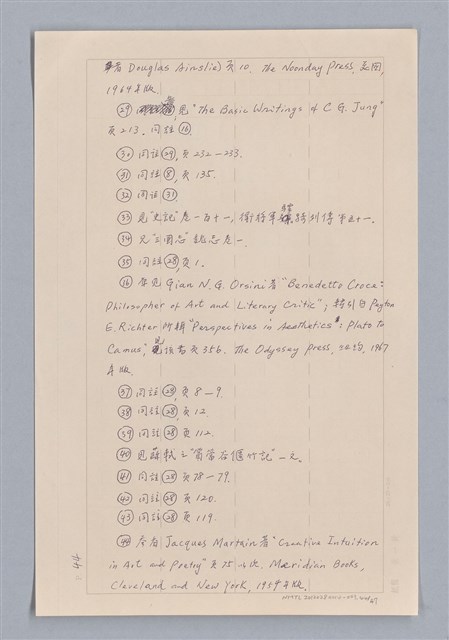 者 Douglas Ainslie) 页 10. The Noonday Press, 美国,
1964年版.
㉙ 见 "The Basic Writings of C. G. Jung"
页 213. 同註 ⑯.
㉚ 同註 ㉙, 页 232—233.
㉛ 同註 ⑧, 页 135.
㉜ 同註 ㉛.
㉝ 见"史記"卷一百十一, 衛将軍驃騎列傳第五十一.
㉞ 见"三国志"魏志卷一.
㉟ 同註 ㉘, 页 1.
㊱ 参见 Gian N. G. Orsini 著 "Benedetto Croce:
Philosopher of Art and Literary Critic"; 轉引自 Peyton
E. Richter 所輯 "Perspectives in Aesthetics: Plato to
Camus", 见該書页 356. The Odyssey Press, 纽约, 1967
年版.
㊲ 同註 ㉘, 页 8—9.
㊳ 同註 ㉘, 页 12.
㊴ 同註 ㉘ 页 112.
㊵ 见蘇軾之"篔簹谷偃竹記"一文.
㊶ 同註 ㉘ 页 78—79.
㊷ 同註 ㉘ 页 120.
㊸ 同註 ㉘ 页 119.
㊹ 参看 Jacques Martain 著 "Creative Intuition
in Art and Poetry" 页 75 以後. Meridian Books,
Cleveland and New York, 1954年版.
44